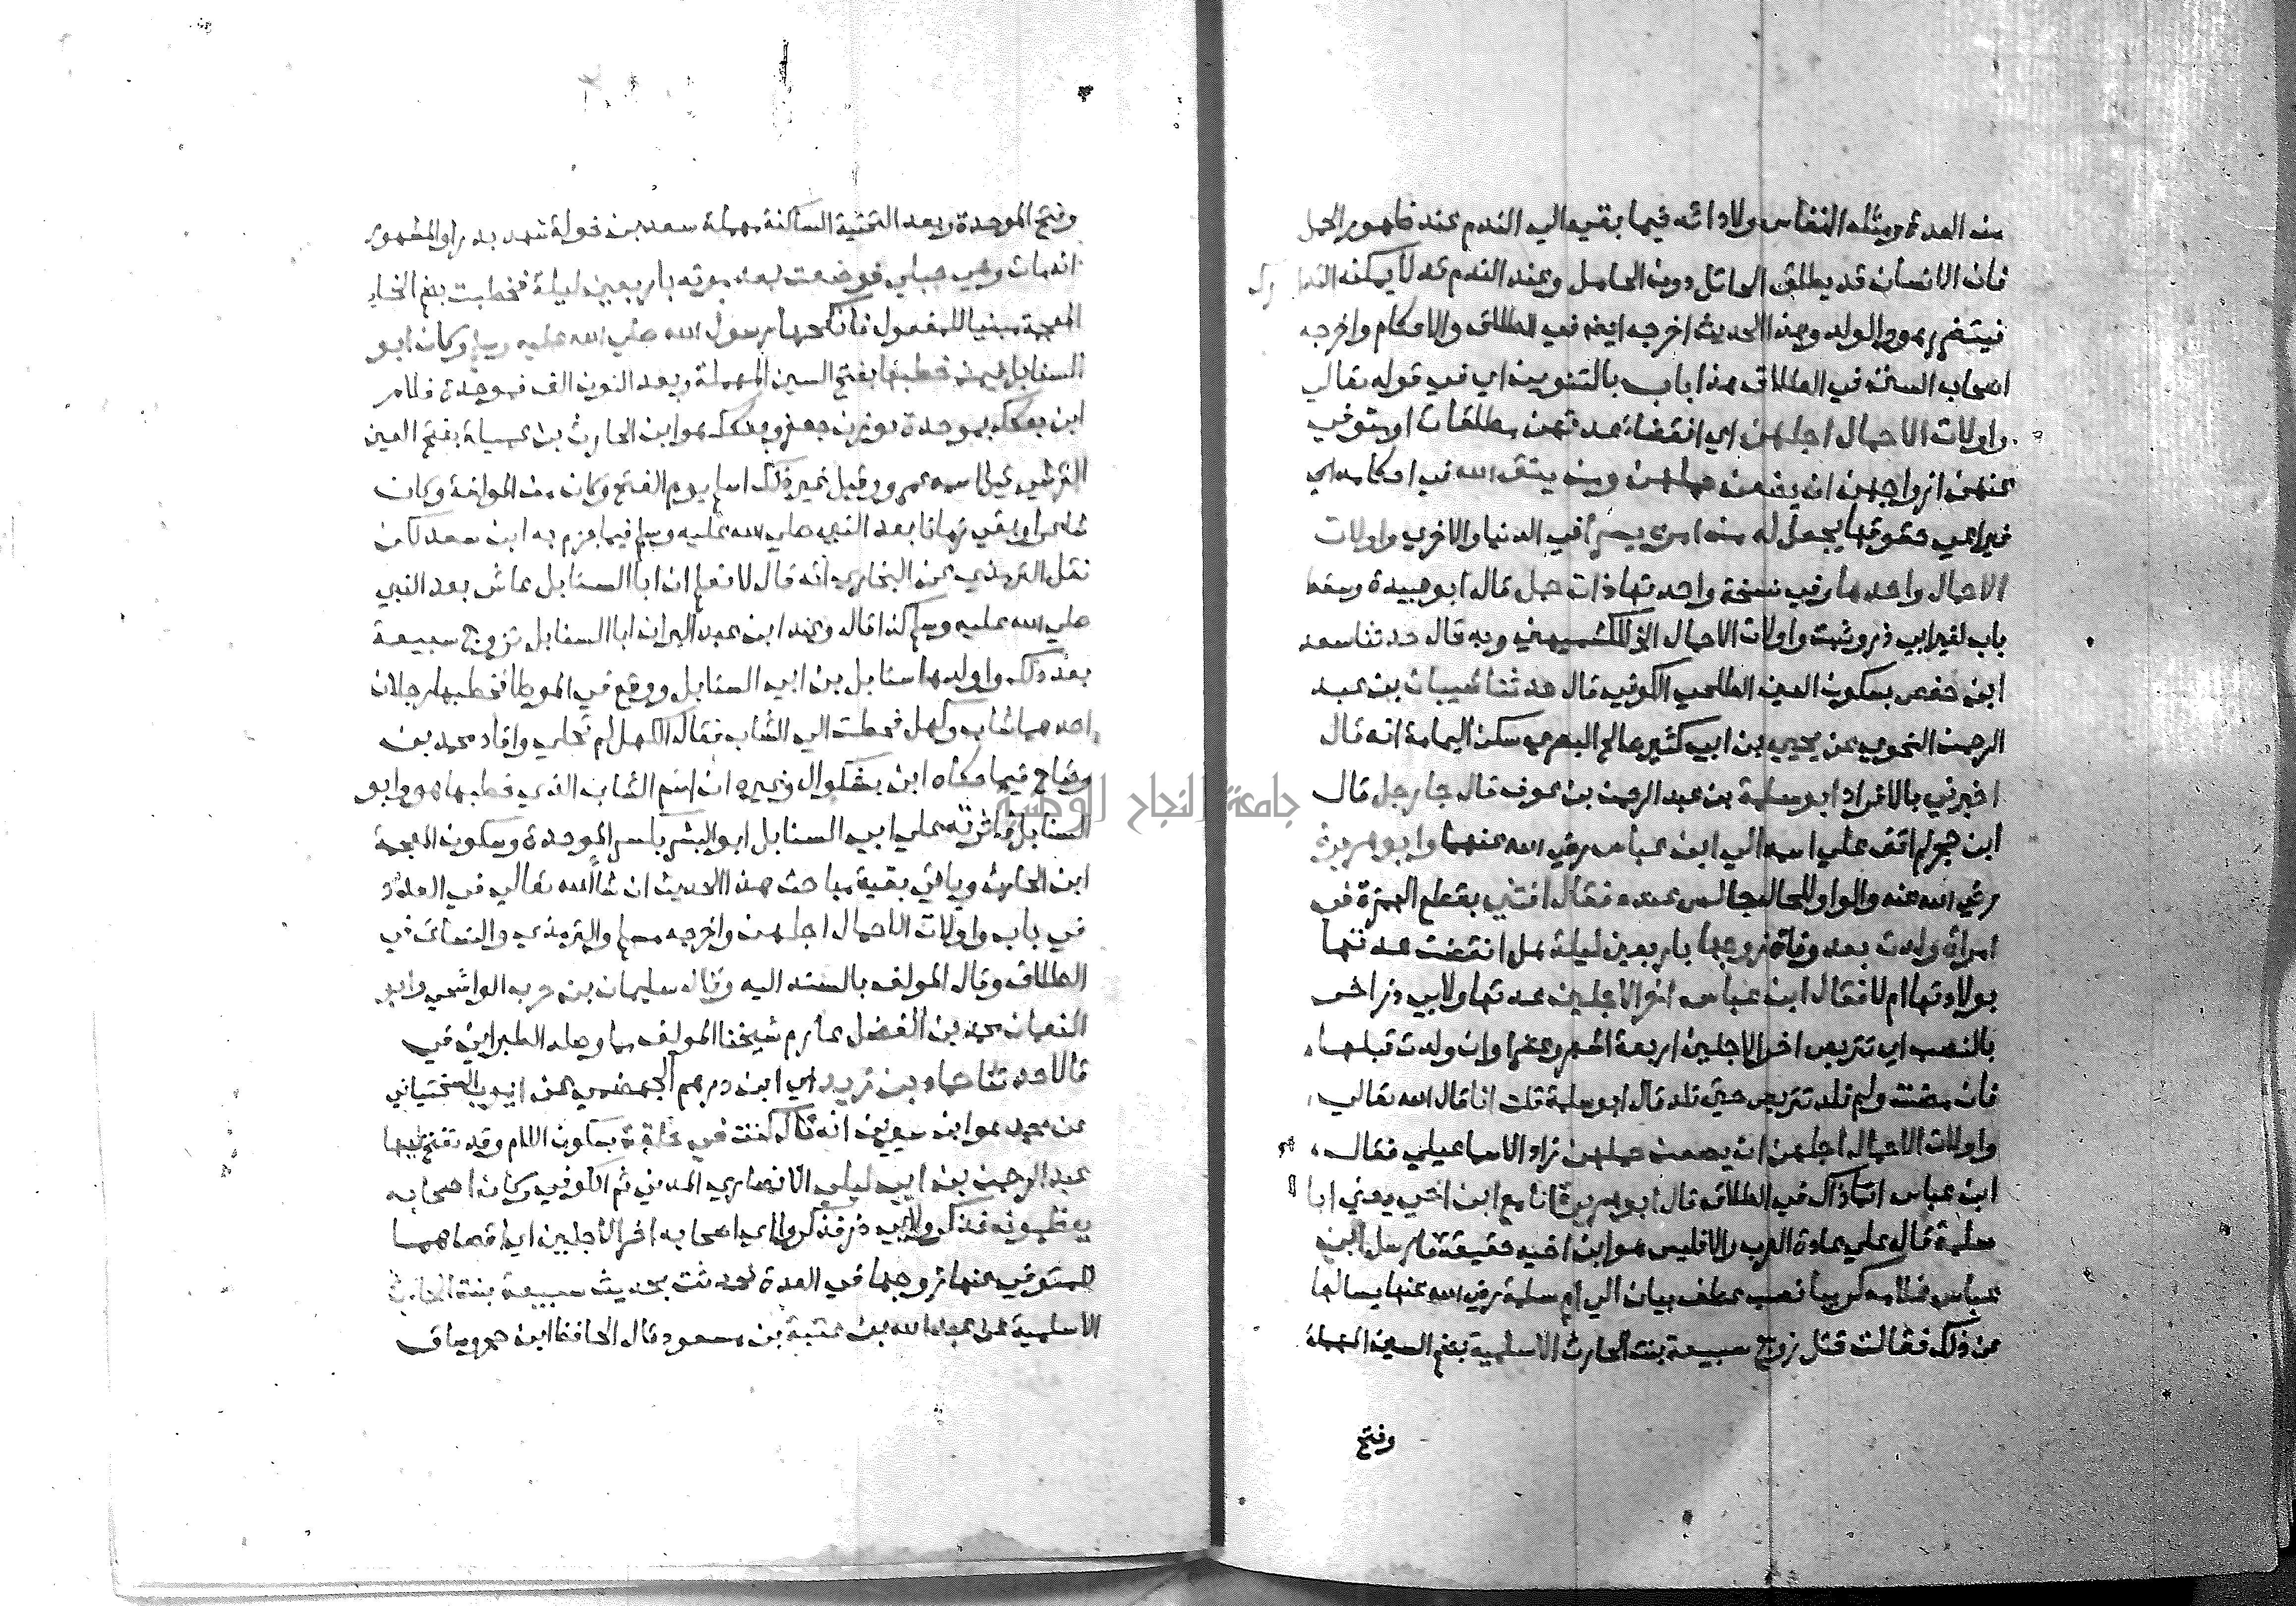 من العدة ومثله النفاس ولادائه فيما بقي الي الندم عند ظهور الحمل
فان الانسان قد يطلق الحائل دون الحامل وعند الندم قد لا يمكنه
فيتضرر هو والولد وهذا الحديث اخرجه ايضا في الطلاق والاحكام واخرجه
اصحاب السنن في الطلاق هذا باب بالتنوين اي في قوله تعالي
واولات الاحمال اجلهن اي انقضاء عدتهن مطلقات او متوفي
عنهن ازواجهن ان يضعن حملهن ومن يتق الله في احكامه اي
فيراعي حقوقها يجعل له من امره يسرا في الدنيا والاخري واولات
الاحمال واحدها وفي نسخة واحدتها ذات حمل قال ابو عبيدة وسقط
باب لغير ابي ذر وثبت واولات الاحمال الخ للكشميهني وبه قال حدثنا سعد
ابن حفص بسكون العين الطلحي الكوفي قال حدثنا شيبان بن عبد
الرحمن النحوي عن يحيي بن ابي كثير صالح البصري سكن اليمامة انه قال
اخبرني بالافراد ابو سلمة بن عبد الرحمن بن عوف قال جا رجل قال
ابن حجر لم اقف علي اسمه الي ابن عباس رضي الله عنهما وابو هريرة
رضي الله عنه والواو للحال جالس عنده فقال افتني بقطع الهمزة في
امراة ولدت بعد وفاة زوجها باربعين ليلة هل انقضت عدتها
بولادتها ام لا فقال ابن عباس اخر الاجلين عدتها ولابي ذر اخر
بالنصب اي تتربص اخر الاجلين اربعة اشهر وعشرا وان ولدت قبلها
فان مضت ولم تلد تتربص حتي تلد قال ابو سلمة قلت انا قال الله تعالي
واولات الاحمال اجلهن ان يضعن حملهن زاد الاسماعيلي فقال
ابن عباس انما ذاك في الطلاق قال ابو هريرة انا مع ابن اخي يعني ابا
سلمة قال علي عادة العرب والا فليس هو ابن اخيه حقيقة فارسل ابن
عباس غلامه كريبا نصب عطف بيان الي ام سلمة رضي الله عنها يسالها
عن ذلك فقالت قتل زوج سبيعة بنت الحارث الاسلمية بضم السين المهملة
وفتح
وفتح الموحدة وبعد التحتية الساكنة مهملة سعد بن خولة شهد بدرا والمشهور
انه مات وهي حبلي فوضعت بعد موته باربعين ليلة فخطبت بضم الخاء
المعجمة مبنيا للمفعول فانكحها رسول الله صلي الله عليه وسلم وكان ابو
السنابل فيمن خطبها بفتح السين المهملة وبعد النون الف فموحدة فلام
ابن بعكك بموحدة بوزن جعفر وبعكك هو ابن الحارث بن عميلة بفتح العين
القرشي قيل اسمه عمرو وقيل غير ذلك اسلم يوم الفتح وكان من المولفة وكان
شاعرا وبقي زمانا بعد النبي صلي الله عليه وسلم فيما جزم به ابن سعد لكن
نقل الترمذي عن البخاري انه قال لا نعلم ان ابا السنابل عاش بعد النبي
صلي الله عليه وسلم كذا قال وعند ابن عبد البر ان ابا السنابل تزوج سبيعة
بعد ذلك واولدها سنابل بن ابي السنابل ووقع في الموطا فخطبها رجلان
احدهما شاب وكهل فحطت الي الشاب فقال الكهل لم تحلي وافاد محمد بن
وضاح فيما حكاه ابن بشكوال وغيره ان اسم الشاب الذي خطبها هو وابو
السنابل فاثرته علي ابي السنابل ابو البشر بكسر الموحدة وسكون المعجمة
ابن الحارث وياتي بقية مباحث هذا الحديث ان شا الله تعالي في العدد
في باب واولات الاحمال اجلهن واخرجه مسلم والترمذي والنسائي في
الطلاق وقال المولف بالسند اليه وقال سليمان بن حرب الواشحي وابو
النعمان محمد بن الفضل عارم شيخنا المولف مما وصله الطبراني في
قالا حدثنا حماد بن زيد اي ابن درهم الجهضمي عن ايوب السختياني
عن محمد هو ابن سيرين انه قال كنت في حلقة بسكون اللام وقد تفتح فيها
عبد الرحمن بن ابي ليلي الانصاري المدني ثم الكوفي وكان اصحابه
يعظمونه فذكر ولابي ذر فذكروا اي اصحابه اخر الاجلين اي اقصاهما
للمتوفي عنها زوجها في العدة فحدثت بحديث سبيعة بنت الحارث
الاسلمية عن عبد الله بن عتبة بن مسعود قال الحافظ ابن حجر وساق
جامعة النجاح الوطنية